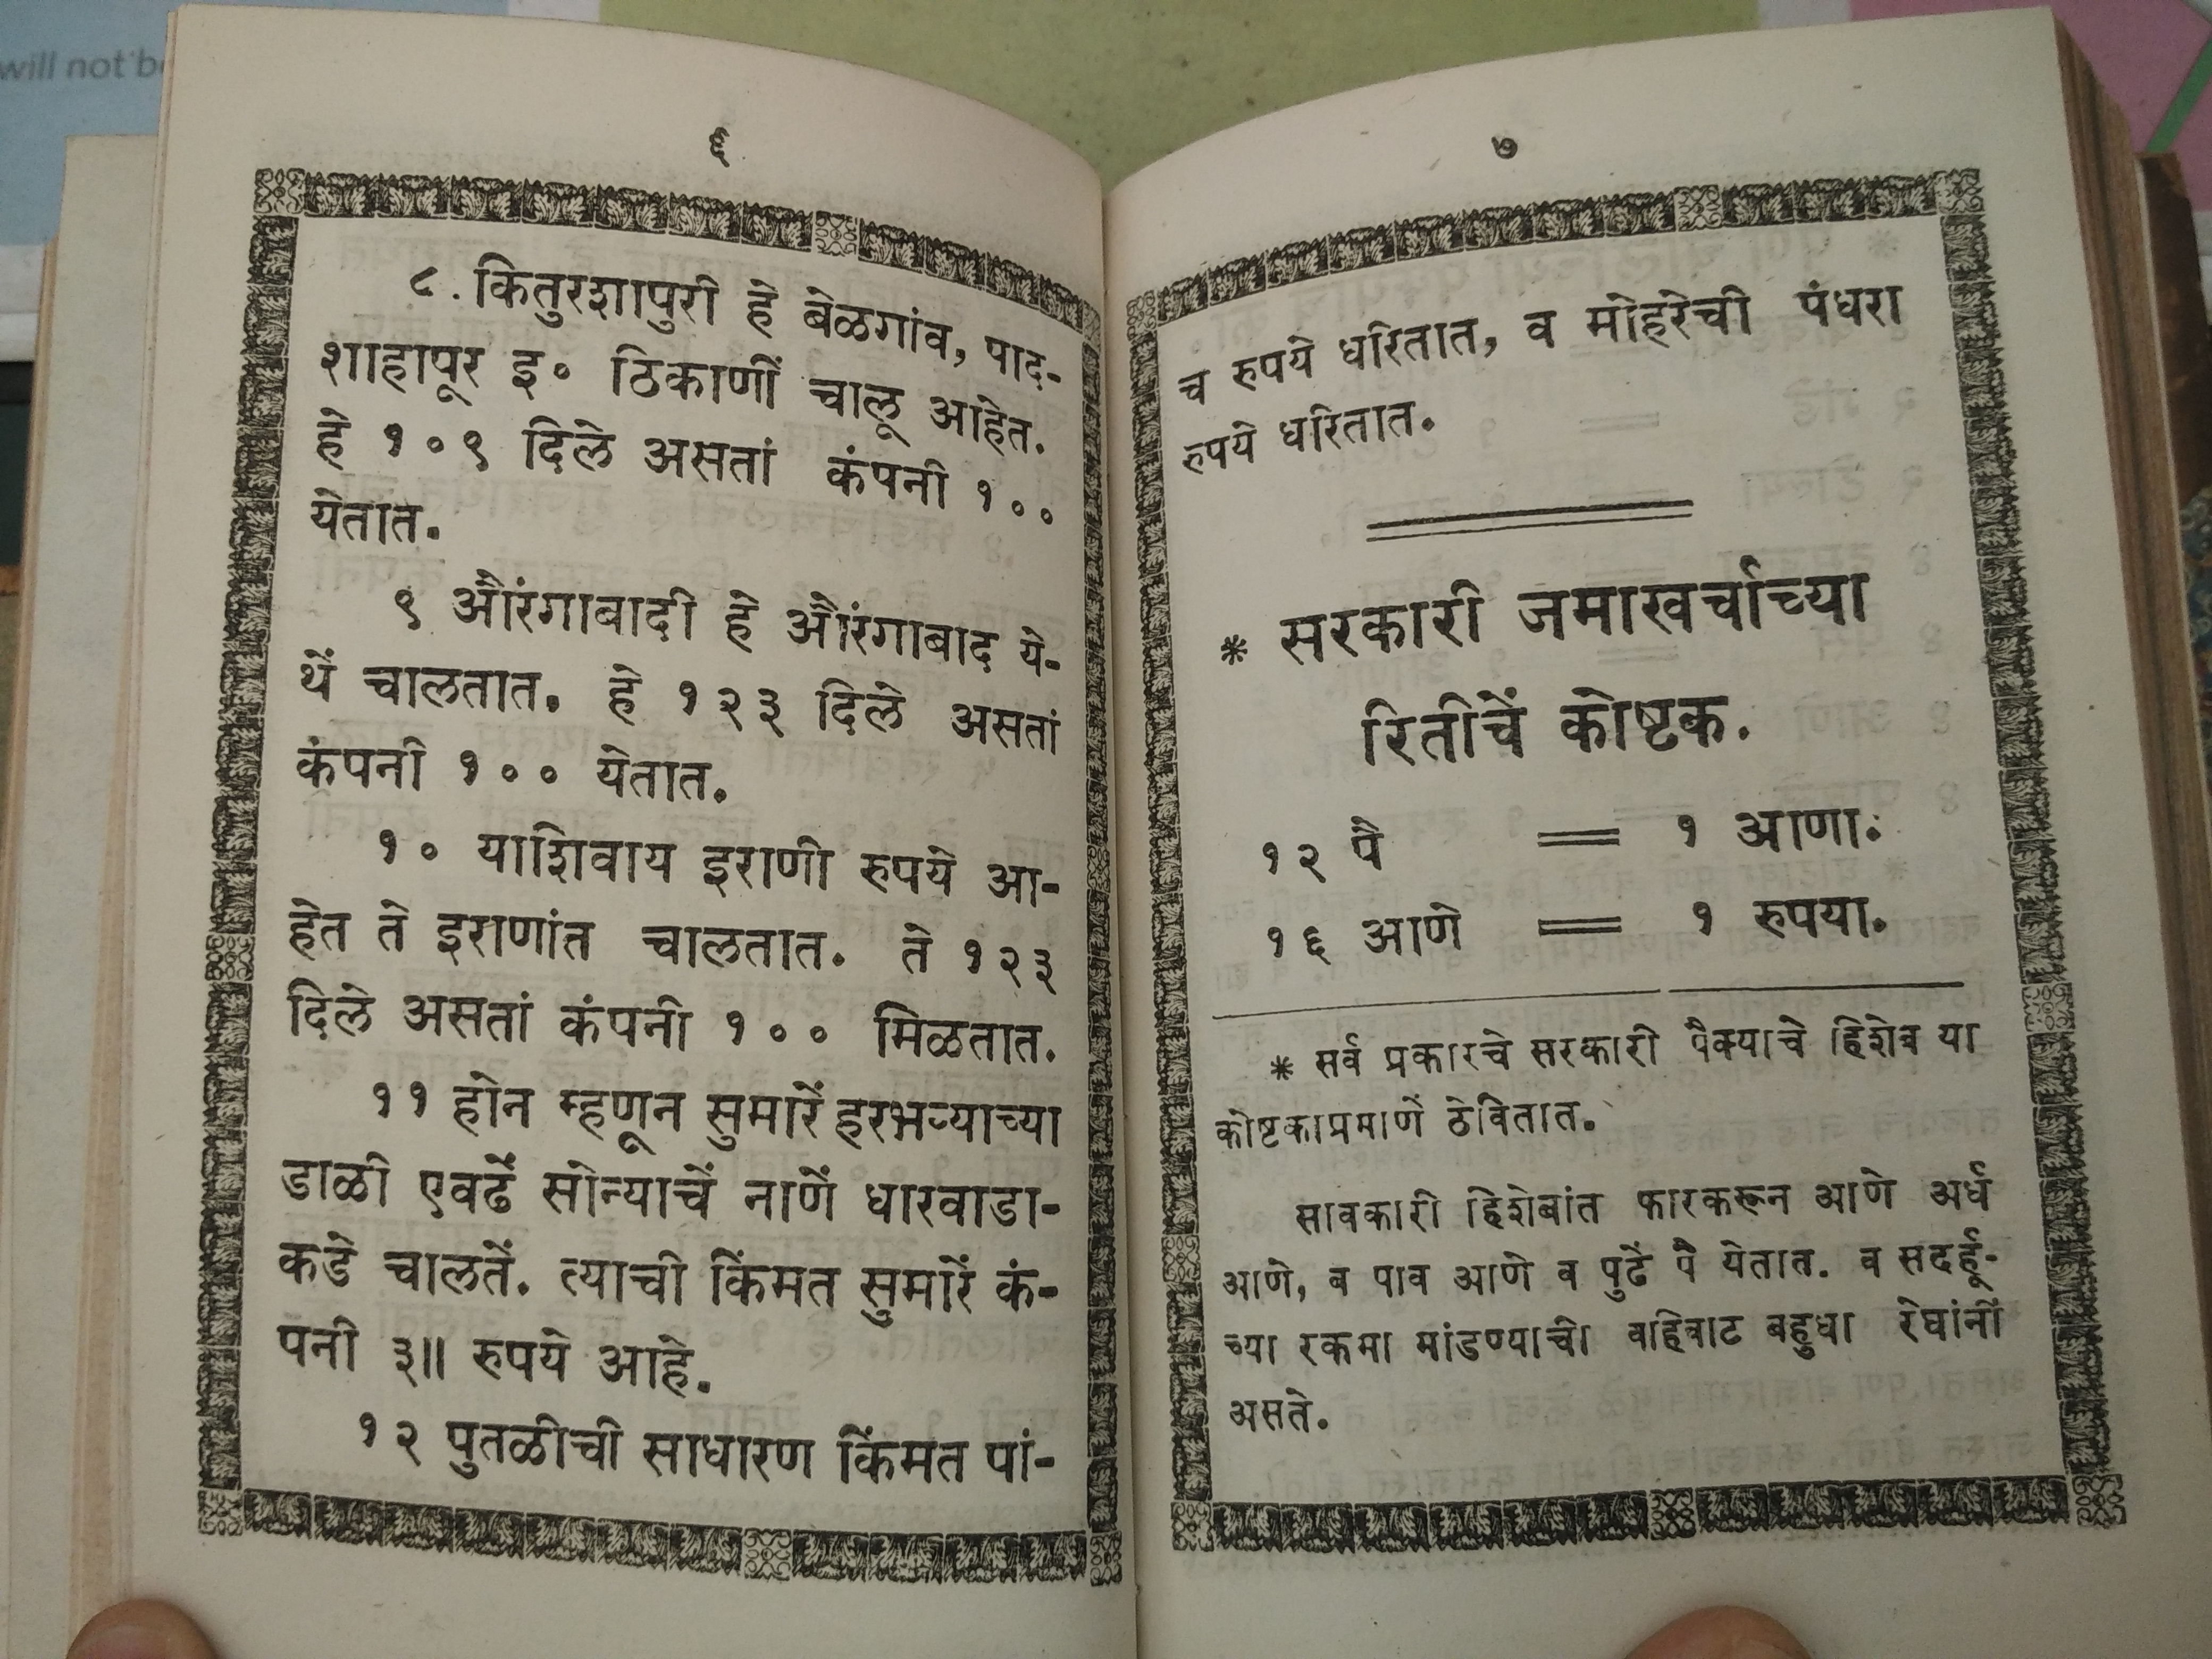 will not be
६
८. कितुरशापुरी हे बेळगांव, पाद-
शाहापूर इ० ठिकाणीं चालू आहेत.
हे १०९ दिले असतां कंपनी १००
येतात.
९ औरंगाबादी हे औरंगाबाद ये-
थें चालतात. हे १२३ दिले असतां
कंपनी १०० येतात.
१० याशिवाय इराणी रुपये आ-
हेत ते इराणांत चालतात. ते १२३
दिले असतां कंपनी १०० मिळतात.
११ होन म्हणून सुमारें हरभऱ्याच्या
डाळी एवढें सोन्याचें नाणें धारवाडा-
कडे चालतें. त्याची किंमत सुमारें कं-
पनी ३॥ रुपये आहे.
१२ पुतळीची साधारण किंमत पां-
७
च रुपये धरितात, व मोहरेची पंधरा
रुपये धरितात.
* सरकारी जमाखर्चाच्या
रितीचें कोष्टक.
१२ पै = १ आणा.
१६ आणे = १ रुपया.
* सर्व प्रकारचे सरकारी पैक्याचे हिशेब या
कोष्टकाप्रमाणें ठेवितात.
सावकारी हिशेबांत फारकरून आणे अर्ध
आणे, व पाव आणे व पुढें पै येतात. व सदर्हू-
च्या रकमा मांडण्याची वहिवाट बहुधा रेघांनीं
असते.